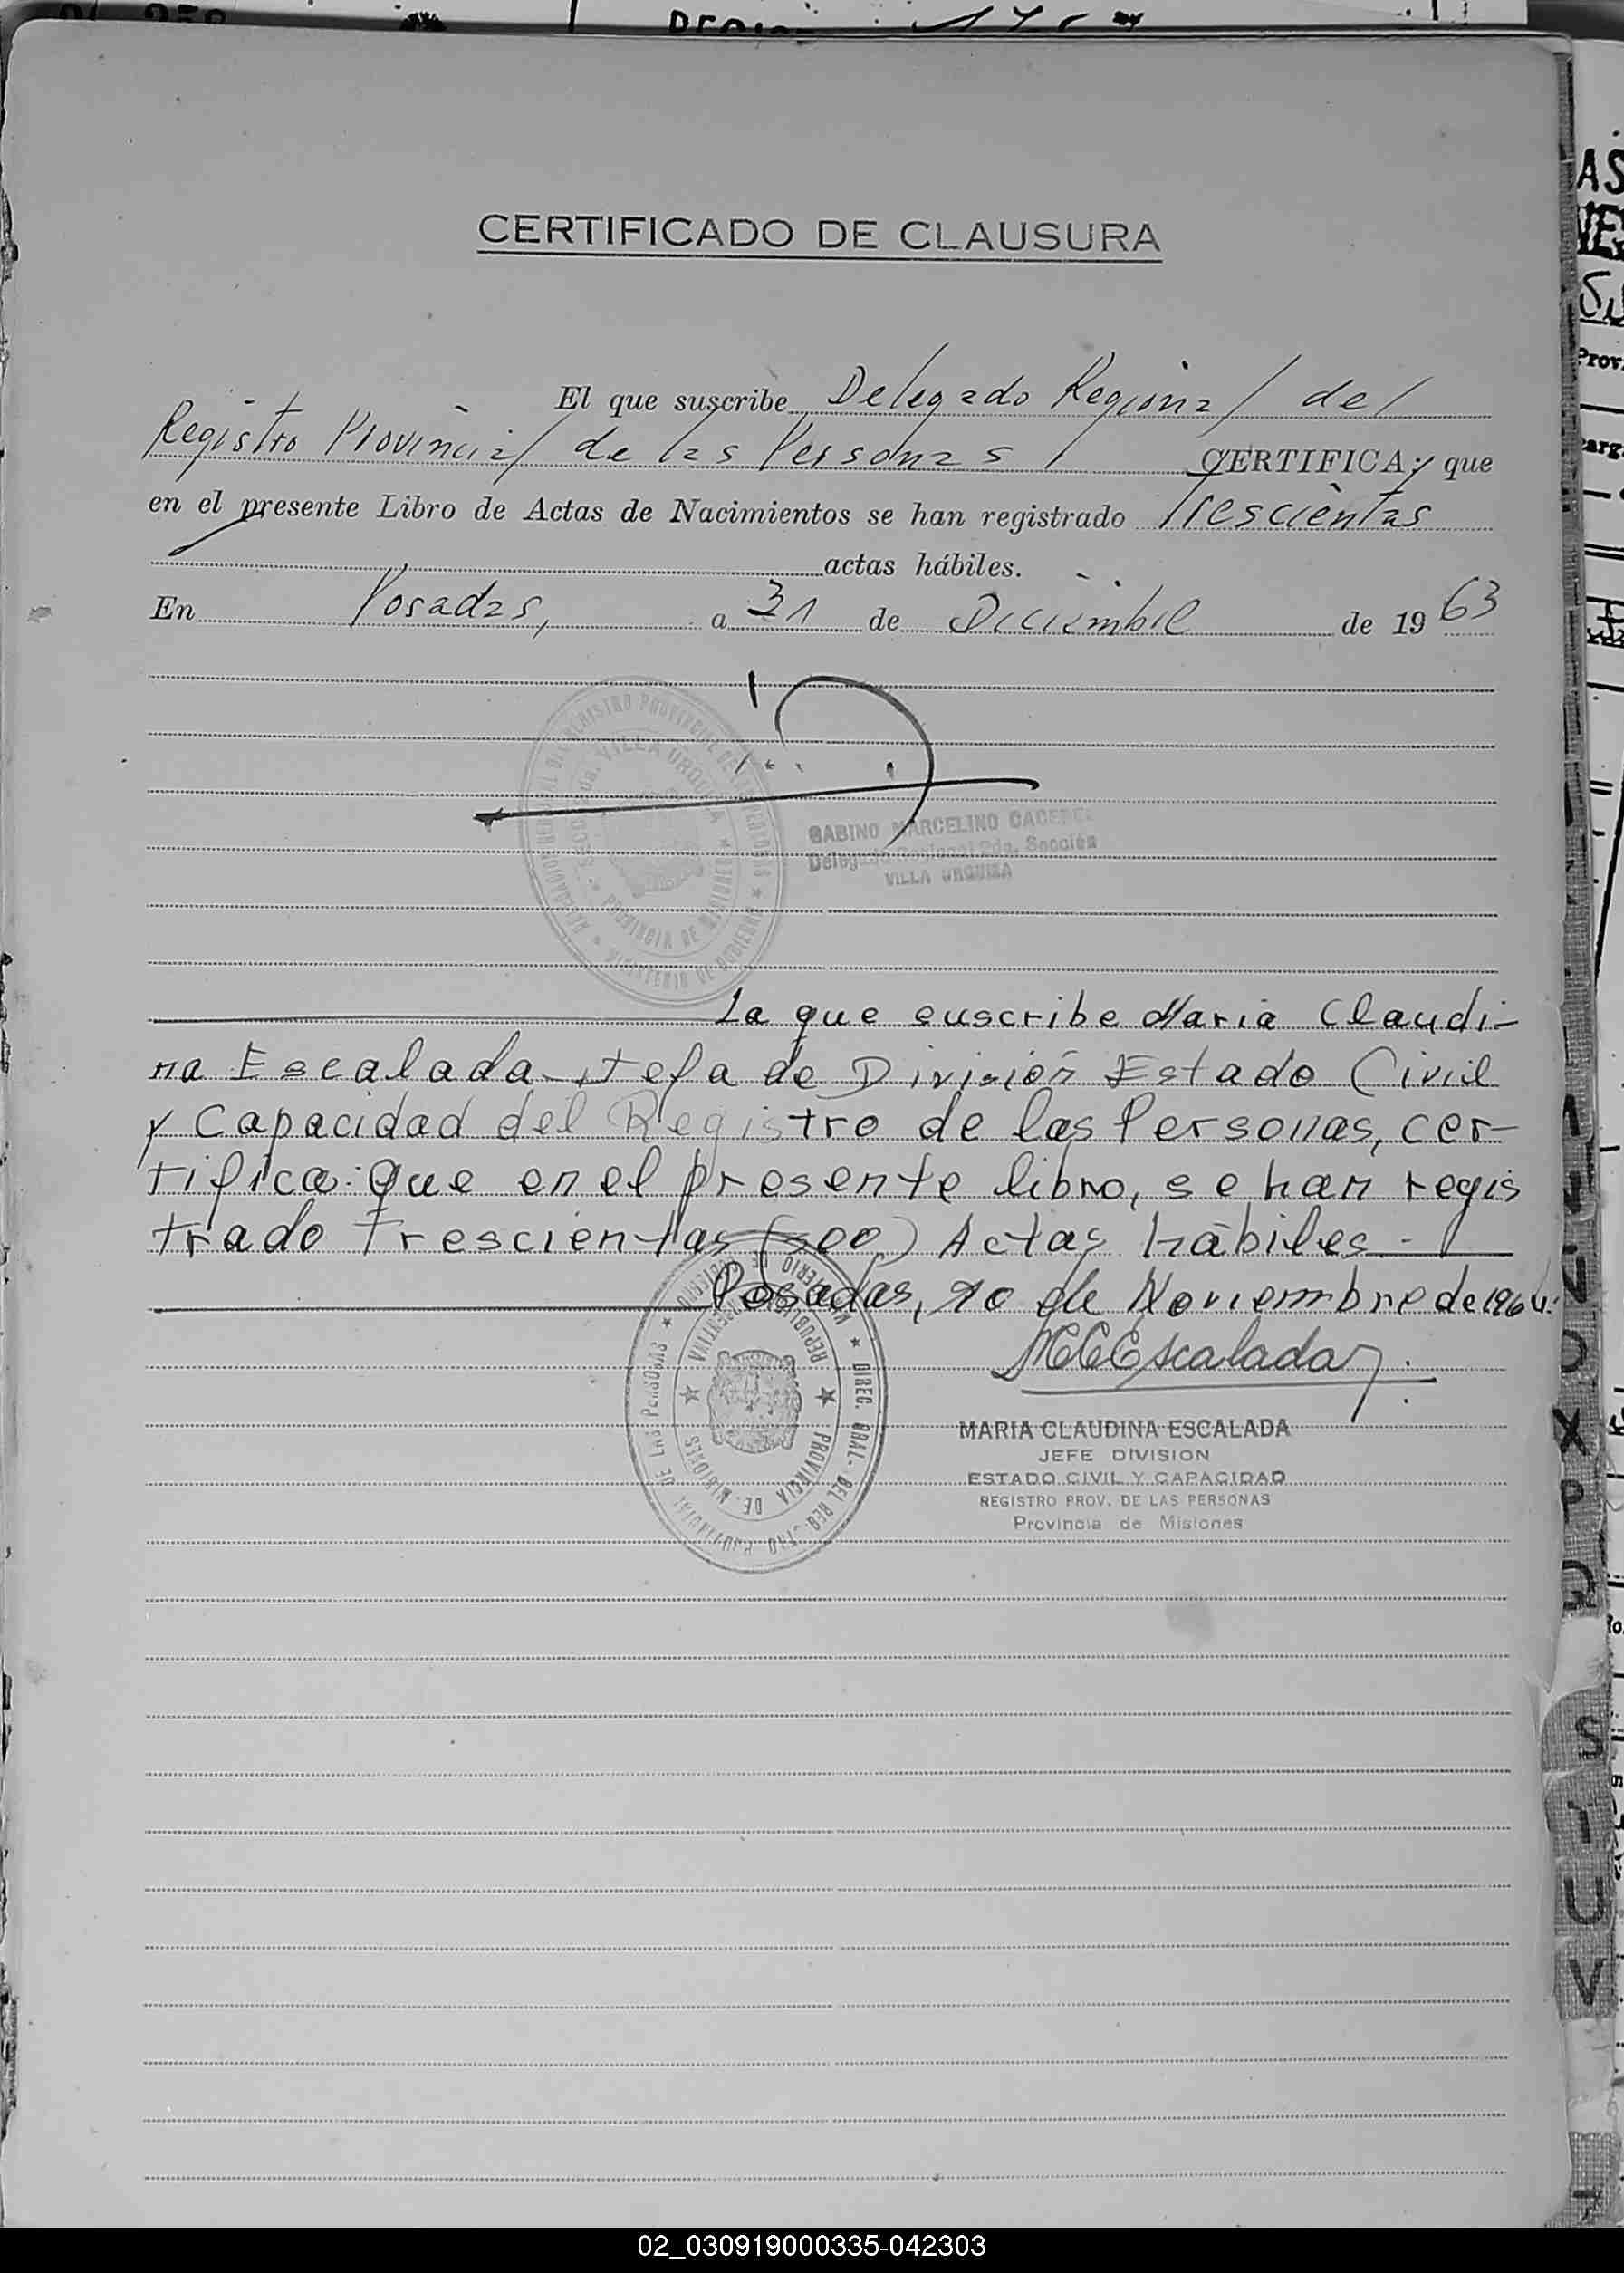 CERTIFICADO DE CLAUSURA
El que suscribe Delegado Regional del
Registro Provincial de las Personas CERTIFICA: que
en el presente Libro de Actas de Nacimientos se han registrado Trescientas
actas hábiles.
En Posadas, a 31 de Diciembre de 1963
SABINO MARCELINO CACERES
Delegado Regional 2da. Sección
VILLA URQUIZA
La que suscribe Maria Claudi-
na Escalada, Jefa de División Estado Civil
y Capacidad del Registro de las Personas, cer-
tifica: que en el presente libro, se han regis
trado trescientas (300) Actas hábiles.-
Posadas, 10 de Noviembre de 1964.
MCEscalada
MARIA CLAUDINA ESCALADA
JEFE DIVISION
ESTADO CIVIL Y CAPACIDAD
REGISTRO PROV. DE LAS PERSONAS
Provincia de Misiones
REPUBLICA ARGENTINA ★ PROVINCIA DE MISIONES
02_030919000335-042303